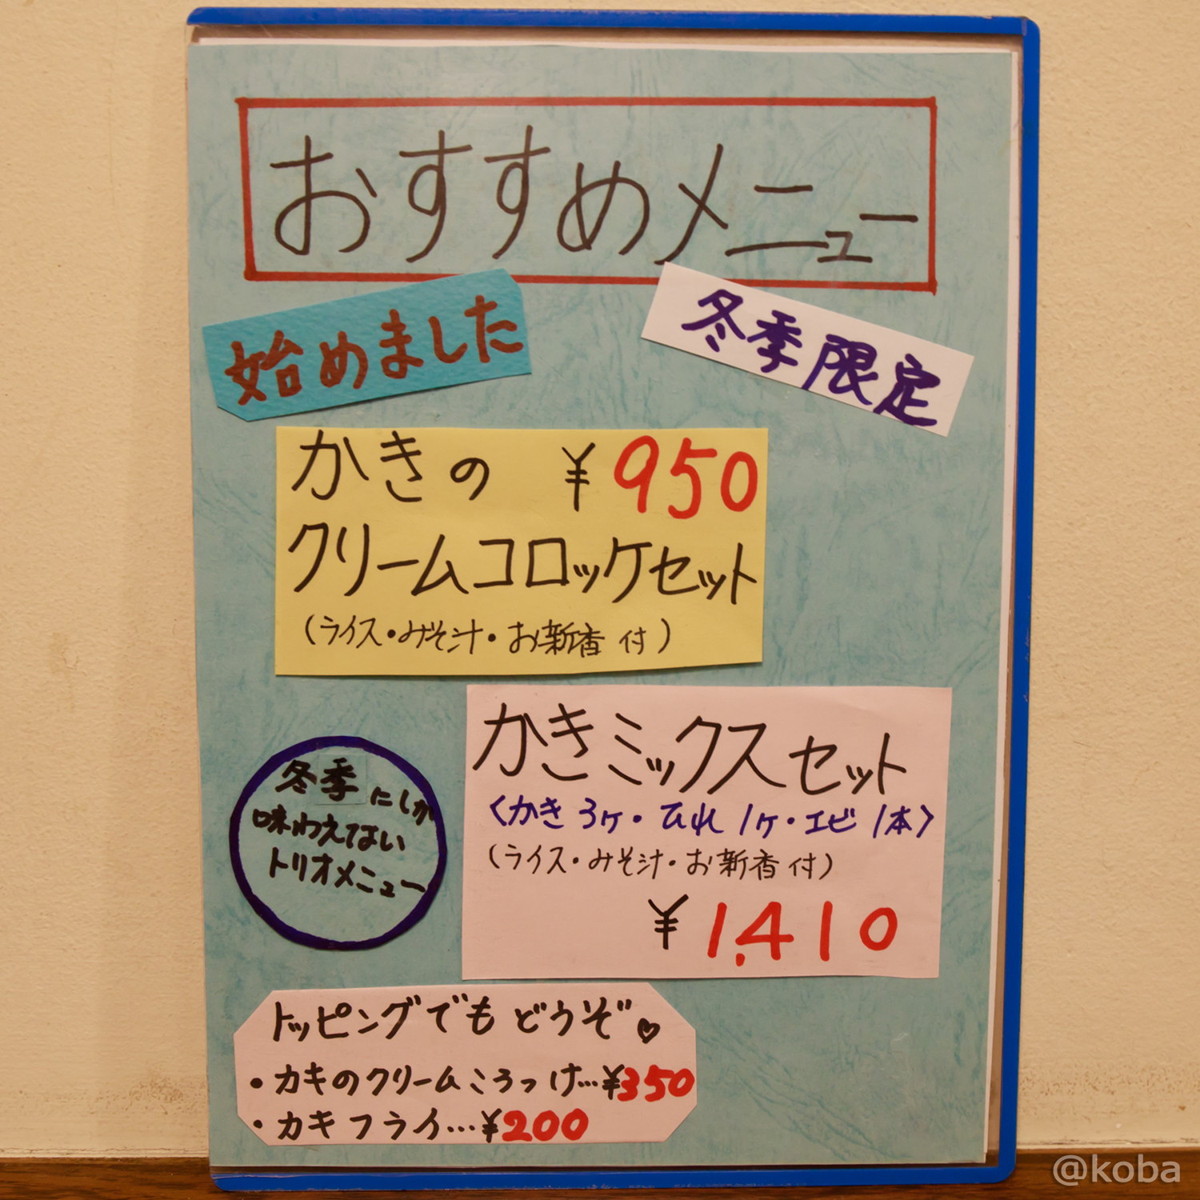 おすすめメニュー
始めました
冬季限定
かきの ¥950
クリームコロッケセット
(ライス・みそ汁・お新香付)
かきミックスセット
〈かき3ヶ・ひれ1ヶ・エビ1本〉
(ライス・みそ汁・お新香付)
¥1,410
冬季にしか
味わえない
トリオメニュー
トッピングでもどうぞ♡
・カキのクリームころっけ…¥350
・カキフライ…¥200
@koba